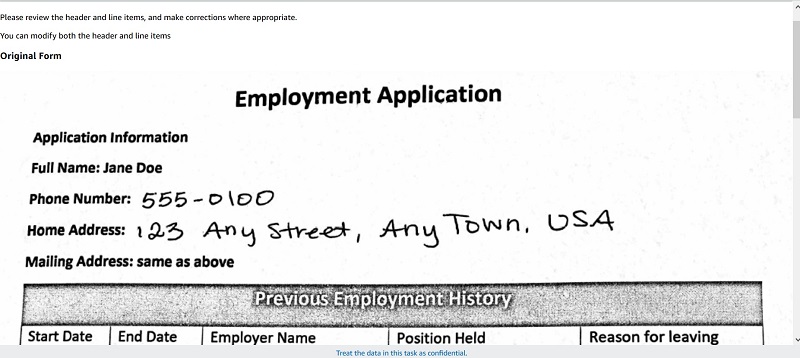 Please review the header and line items, and make corrections where appropriate.
You can modify both the header and line items
Original Form
Employment Application
Application Information
Full Name: Jane Doe
Phone Number: 555-0100
Home Address: 123 Any Street, Any Town, USA
Mailing Address: same as above
Previous Employment History
Start Date End Date Employer Name Position Held Reason for leaving
Treat the data in this task as confidential.